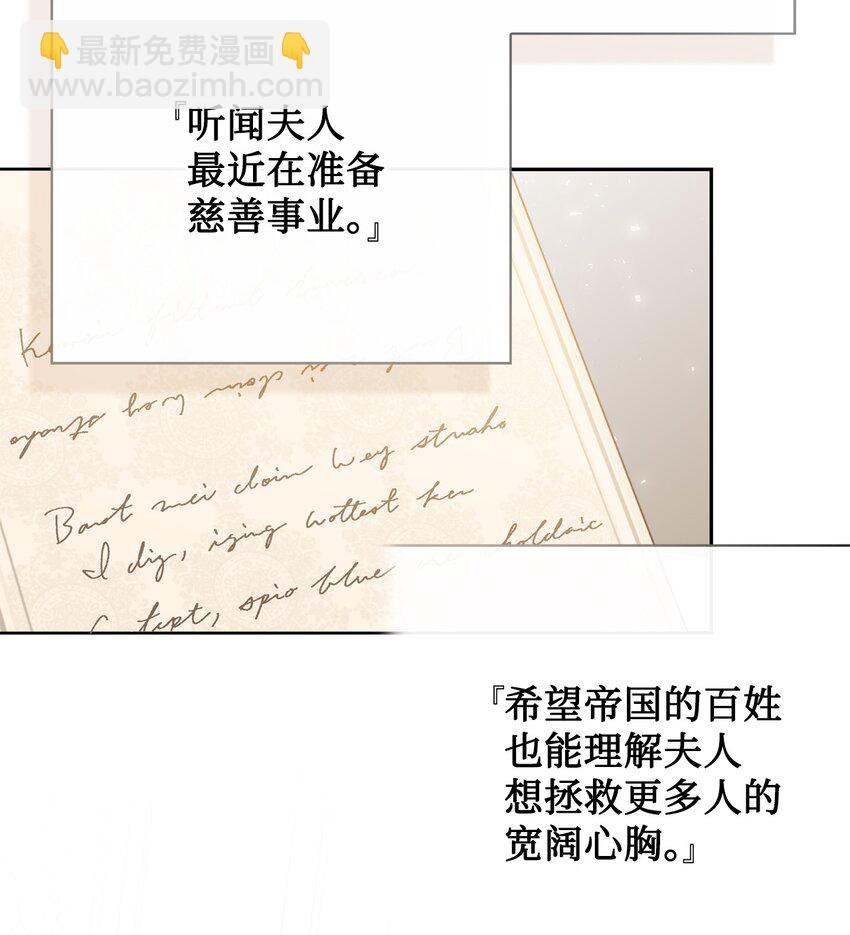 👇最新免费漫画👇
www.baozimh.com
『听闻夫人
最近在准备
慈善事业。』
Barot mei cloin Wey struaho
I dig, iging wottest ken
spio blue
choldaic
『希望帝国的百姓
也能理解夫人
想拯救更多人的
宽阔心胸。』